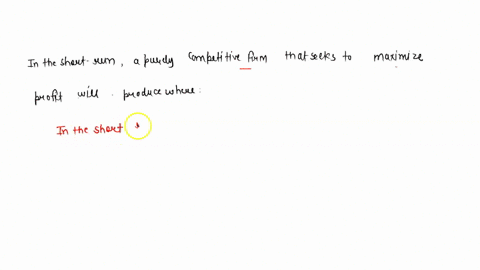 In the short-run, a purely competitive firm that seeks to maximize
profit will produce where:
In the short